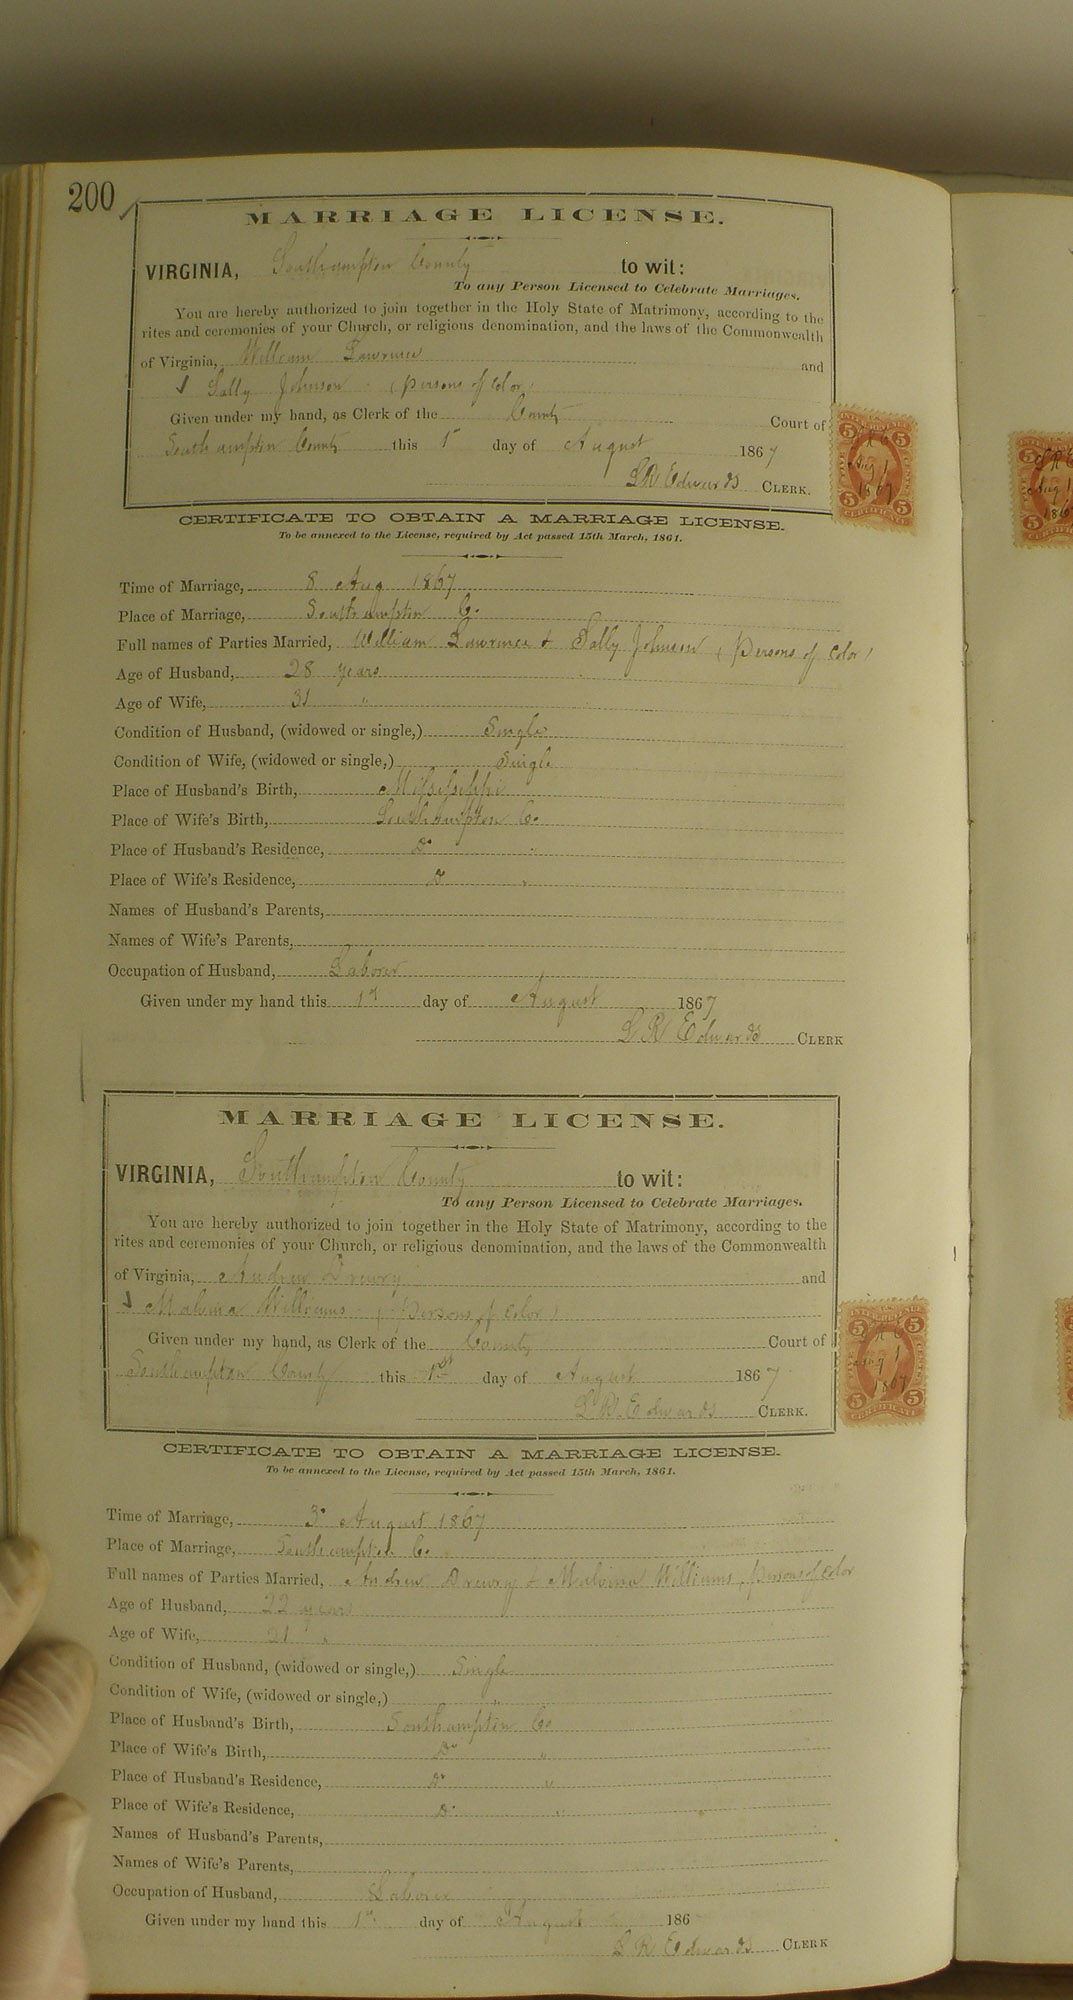 200
MARRIAGE LICENSE.
VIRGINIA, Southampton County to wit:
To any Person Licensed to Celebrate Marriages.
You are hereby authorized to join together in the Holy State of Matrimony, according to the
rites and ceremonies of your Church, or religious denomination, and the laws of the Commonwealth
of Virginia, William Lawrence and
✓ Sally Johnson (persons of color)
Given under my hand, as Clerk of the County Court of
Southampton County this 1st day of August 1867
L R Edwards CLERK.
CERTIFICATE TO OBTAIN A MARRIAGE LICENSE.
To be annexed to the License, required by Act passed 15th March, 1861.
Time of Marriage, 8 Aug 1867
Place of Marriage, Southampton Co.
Full names of Parties Married, William Lawrence & Sally Johnson (Persons of Color)
Age of Husband, 28 years
Age of Wife, 31 "
Condition of Husband, (widowed or single,) Single
Condition of Wife, (widowed or single,) Single
Place of Husband's Birth, Mississippi
Place of Wife's Birth, Southampton Co.
Place of Husband's Residence, Do
Place of Wife's Residence, Do
Names of Husband's Parents,
Names of Wife's Parents,
Occupation of Husband, Laborer
Given under my hand this 1st day of August 1867
L R Edwards CLERK
MARRIAGE LICENSE.
VIRGINIA, Southampton County to wit:
To any Person Licensed to Celebrate Marriages.
You are hereby authorized to join together in the Holy State of Matrimony, according to the
rites and ceremonies of your Church, or religious denomination, and the laws of the Commonwealth
of Virginia, Andrew Drewry and
✓ Malvina Williams (Persons of Color)
Given under my hand, as Clerk of the County Court of
Southampton County this 1st day of August 1867
L R Edwards CLERK.
CERTIFICATE TO OBTAIN A MARRIAGE LICENSE.
To be annexed to the License, required by Act passed 15th March, 1861.
Time of Marriage, 3d August 1867
Place of Marriage, Southampton Co.
Full names of Parties Married, Andrew Drewry & Malvina Williams, Persons of Color
Age of Husband, 22 years
Age of Wife, 21 "
Condition of Husband, (widowed or single,) Single
Condition of Wife, (widowed or single,) "
Place of Husband's Birth, Southampton Co
Place of Wife's Birth, Do "
Place of Husband's Residence, Do "
Place of Wife's Residence, Do "
Names of Husband's Parents,
Names of Wife's Parents,
Occupation of Husband, Laborer
Given under my hand this 1st day of August 186
L R Edwards CLERK
5 5
Aug 1
1867
5 CENTS 5
CERTIFICATE
L R E
Aug 1
1867
5 5
L R E
Aug 1
1867
5 5
CERTIFICATE